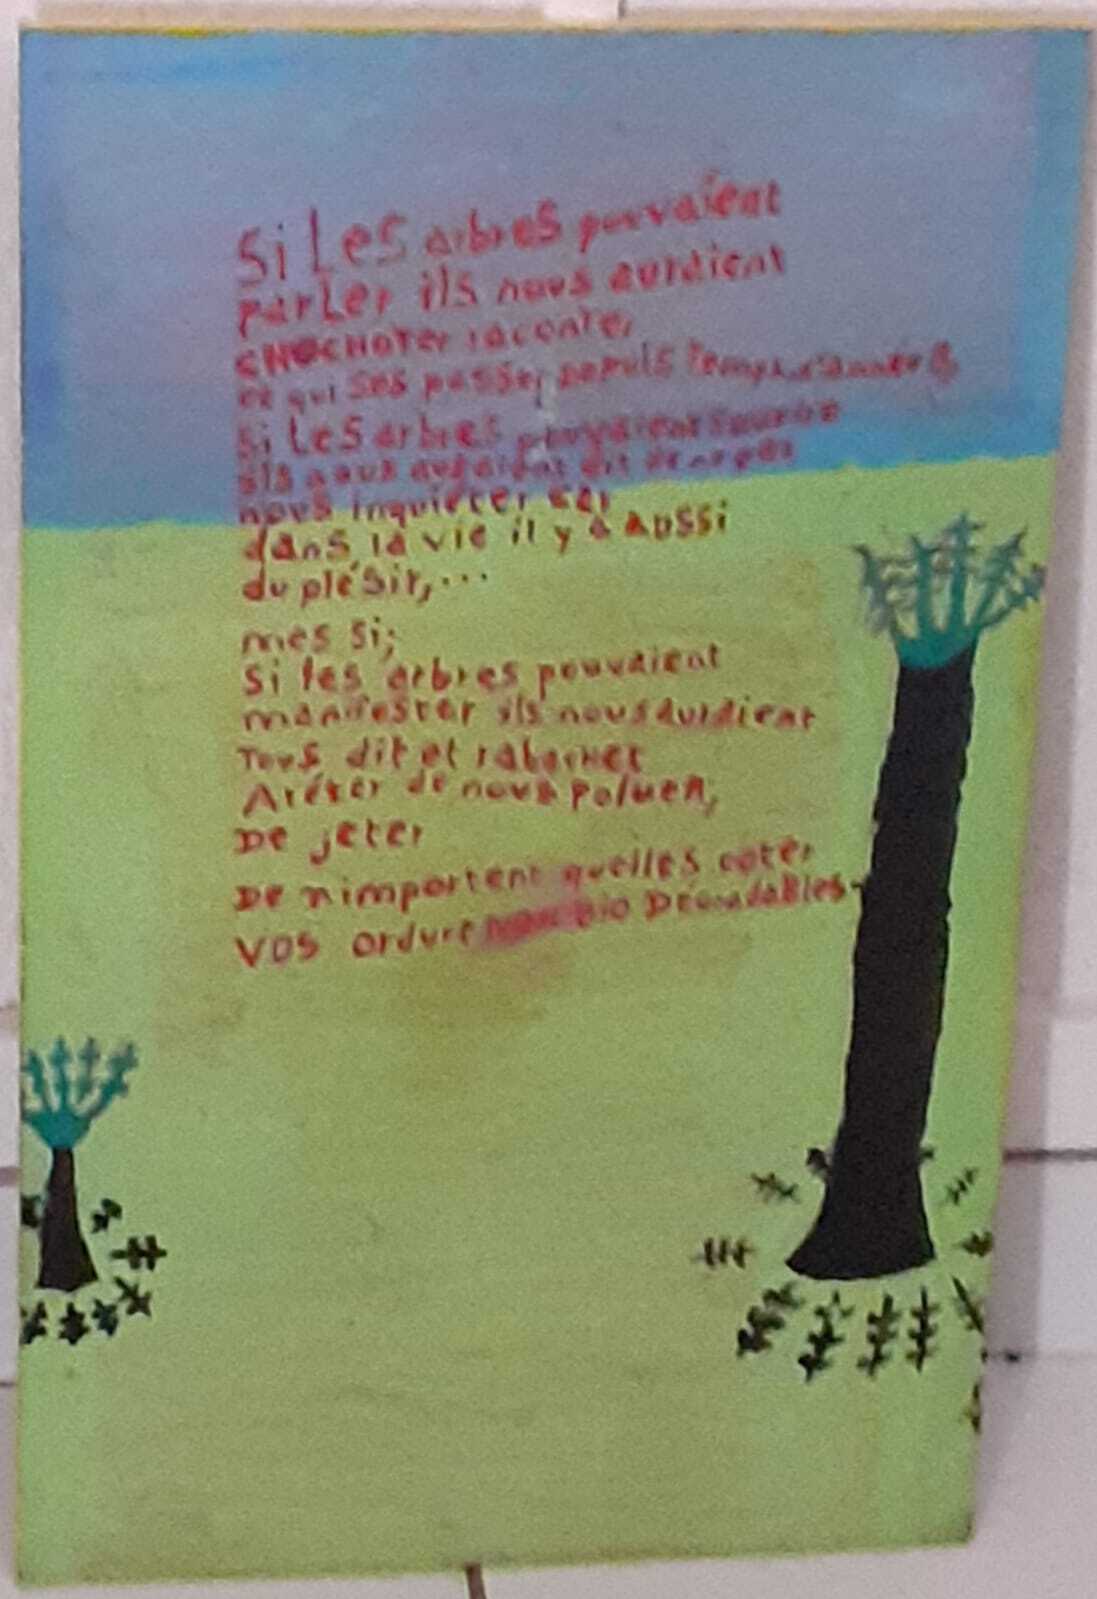 Si Les arbres pouvaient
parler ils nous auraient
CHUCHOTer raconter
ce qui ses passer depuis Temps d'année
Si Les arbres pouvaient
ils nous auraient dit de ne pas
nous inquiéter car
dans la vie il y a AUSSi
du plésir,...
mes si;
Si les arbres pouvaient
manifester ils nous auraient
Tous dit et rabacher
Aréter de nous poluer,
De jeter
De n'importent quelles coter
VOS Ordure Non Bio Dégradables